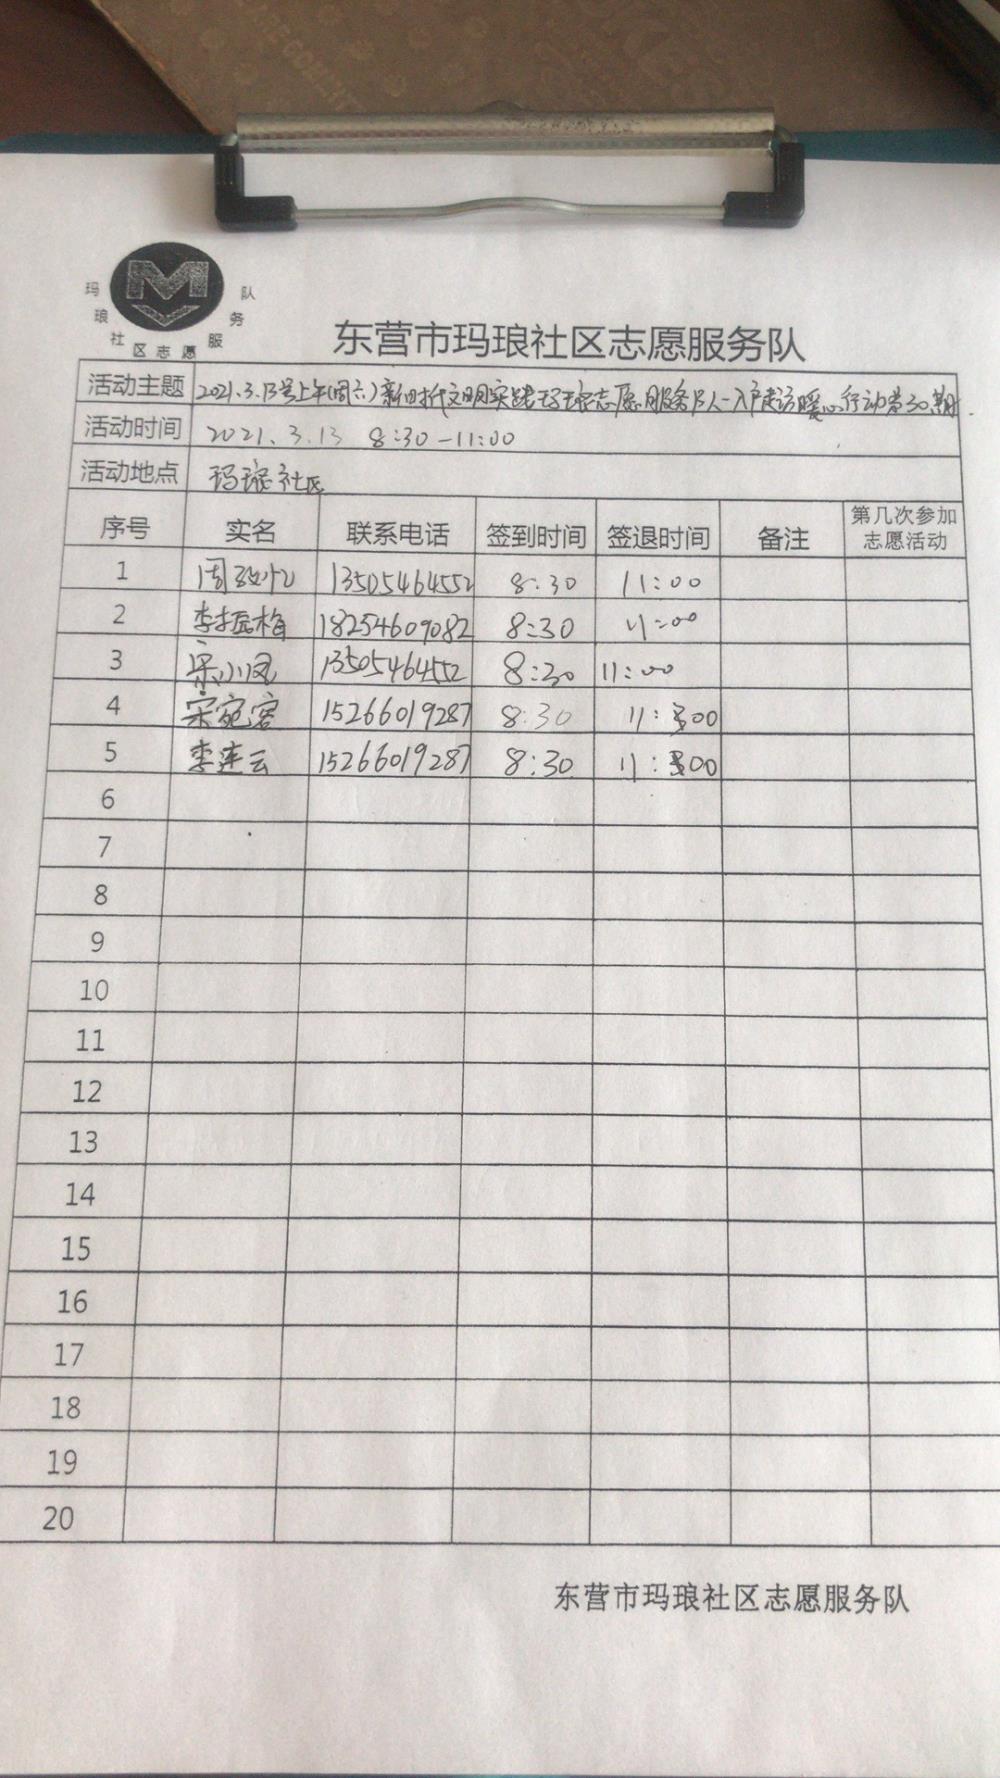 玛琅社区志愿服务队
M
东营市玛琅社区志愿服务队
活动主题 2021.3.13号上午(周六)新时代文明实践玛琅志愿服务队-入户走访暖心行动第30期.
活动时间 2021.3.13 8:30-11:00
活动地点 玛琅社区
序号 实名 联系电话 签到时间 签退时间 备注 第几次参加志愿活动
1 周 13505464552 8:30 11:00
2 李振梅 18254609082 8:30 11:00
3 宋小凤 13505464552 8:30 11:00
4 宋宛容 15266019287 8:30 11:00
5 李连云 15266019287 8:30 11:00
6
7
8
9
10
11
12
13
14
15
16
17
18
19
20
东营市玛琅社区志愿服务队